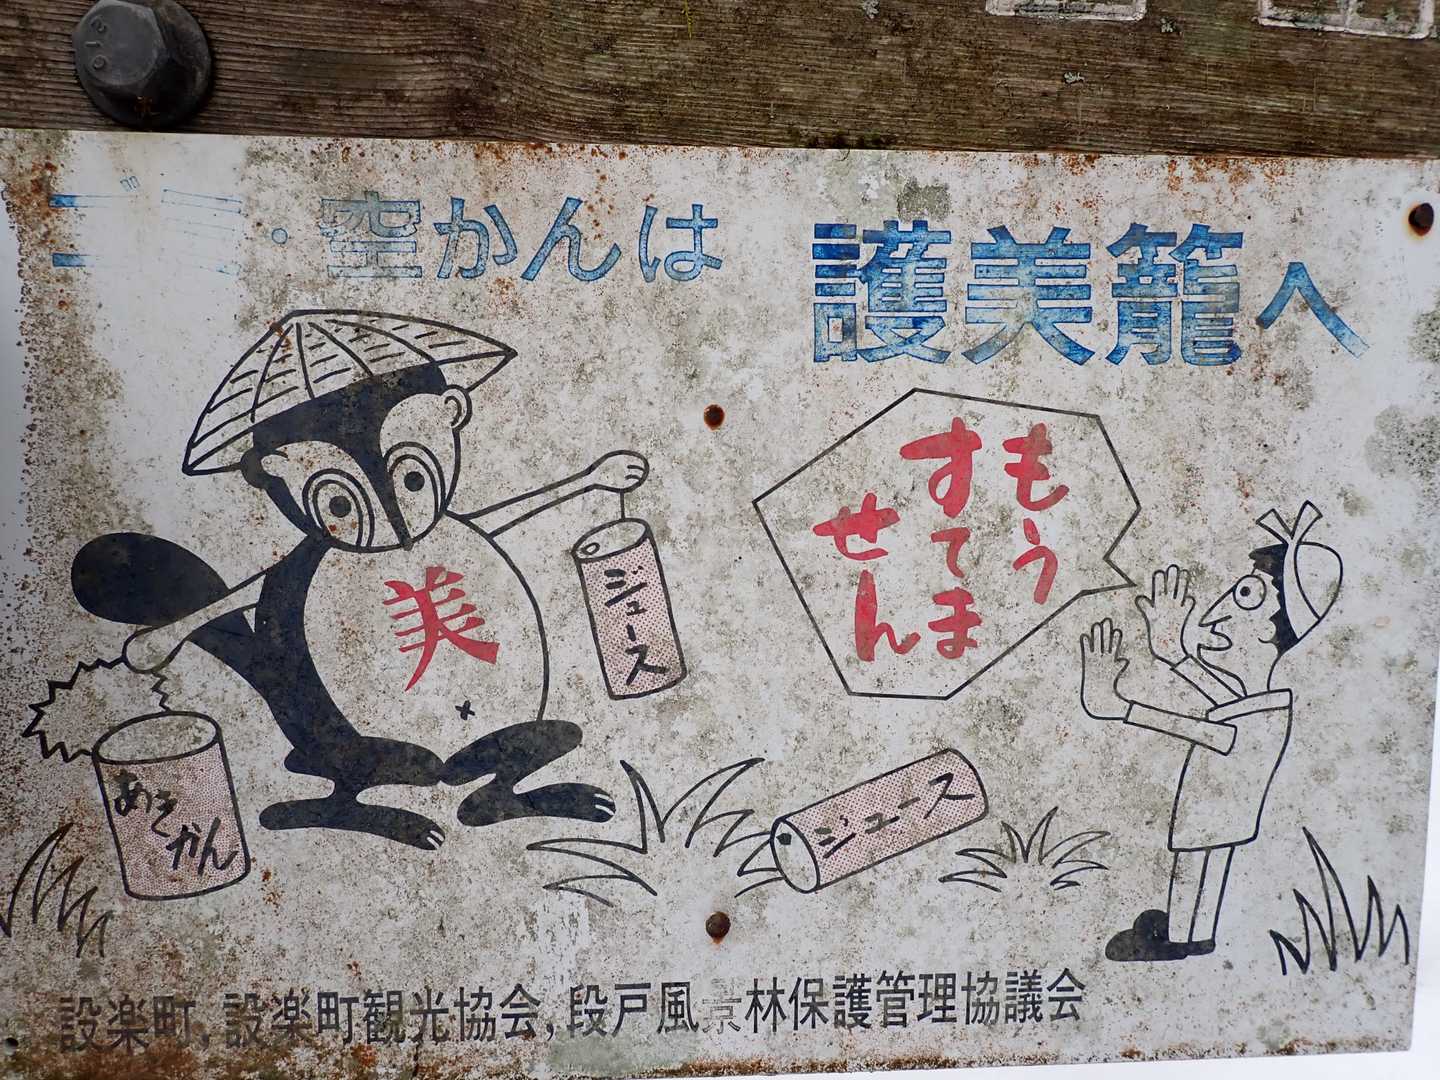 ・空かんは 護美籠へ
もう
すてま
せん
美
ジュース
あきかん
ジュース
設楽町,設楽町観光協会,段戸風景林保護管理協議会